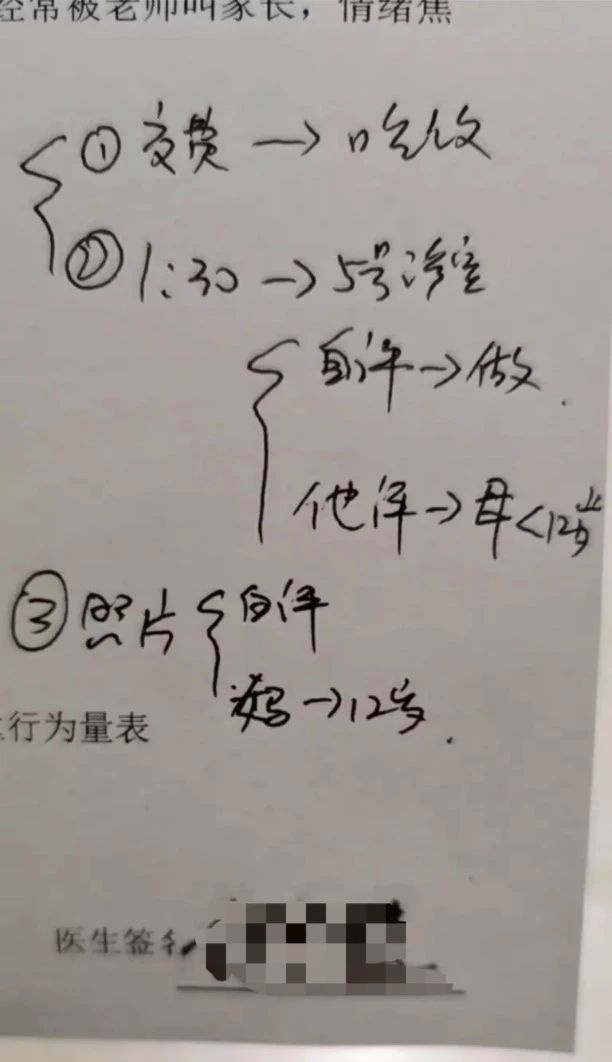 经常被老师叫家长，情绪焦
① 交费 →
② 1:30 → 5号诊室
自评 → 做.
他评 → 母<12岁
③ 照片 自评
妈 → 12岁.
行为量表
医生签名